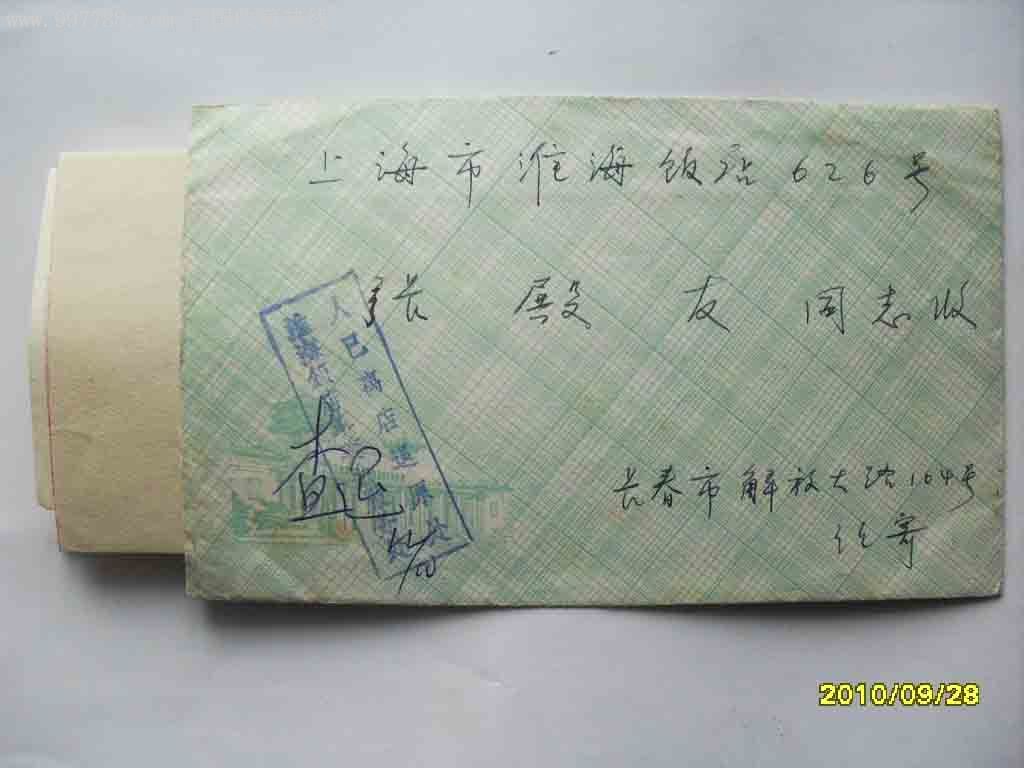 www.997788.com 中国收藏热线
上海市淮海饭店626号
张殿友同志收
人已离店退原处
查退
长春市解放大路104号
任寄
2010/09/28